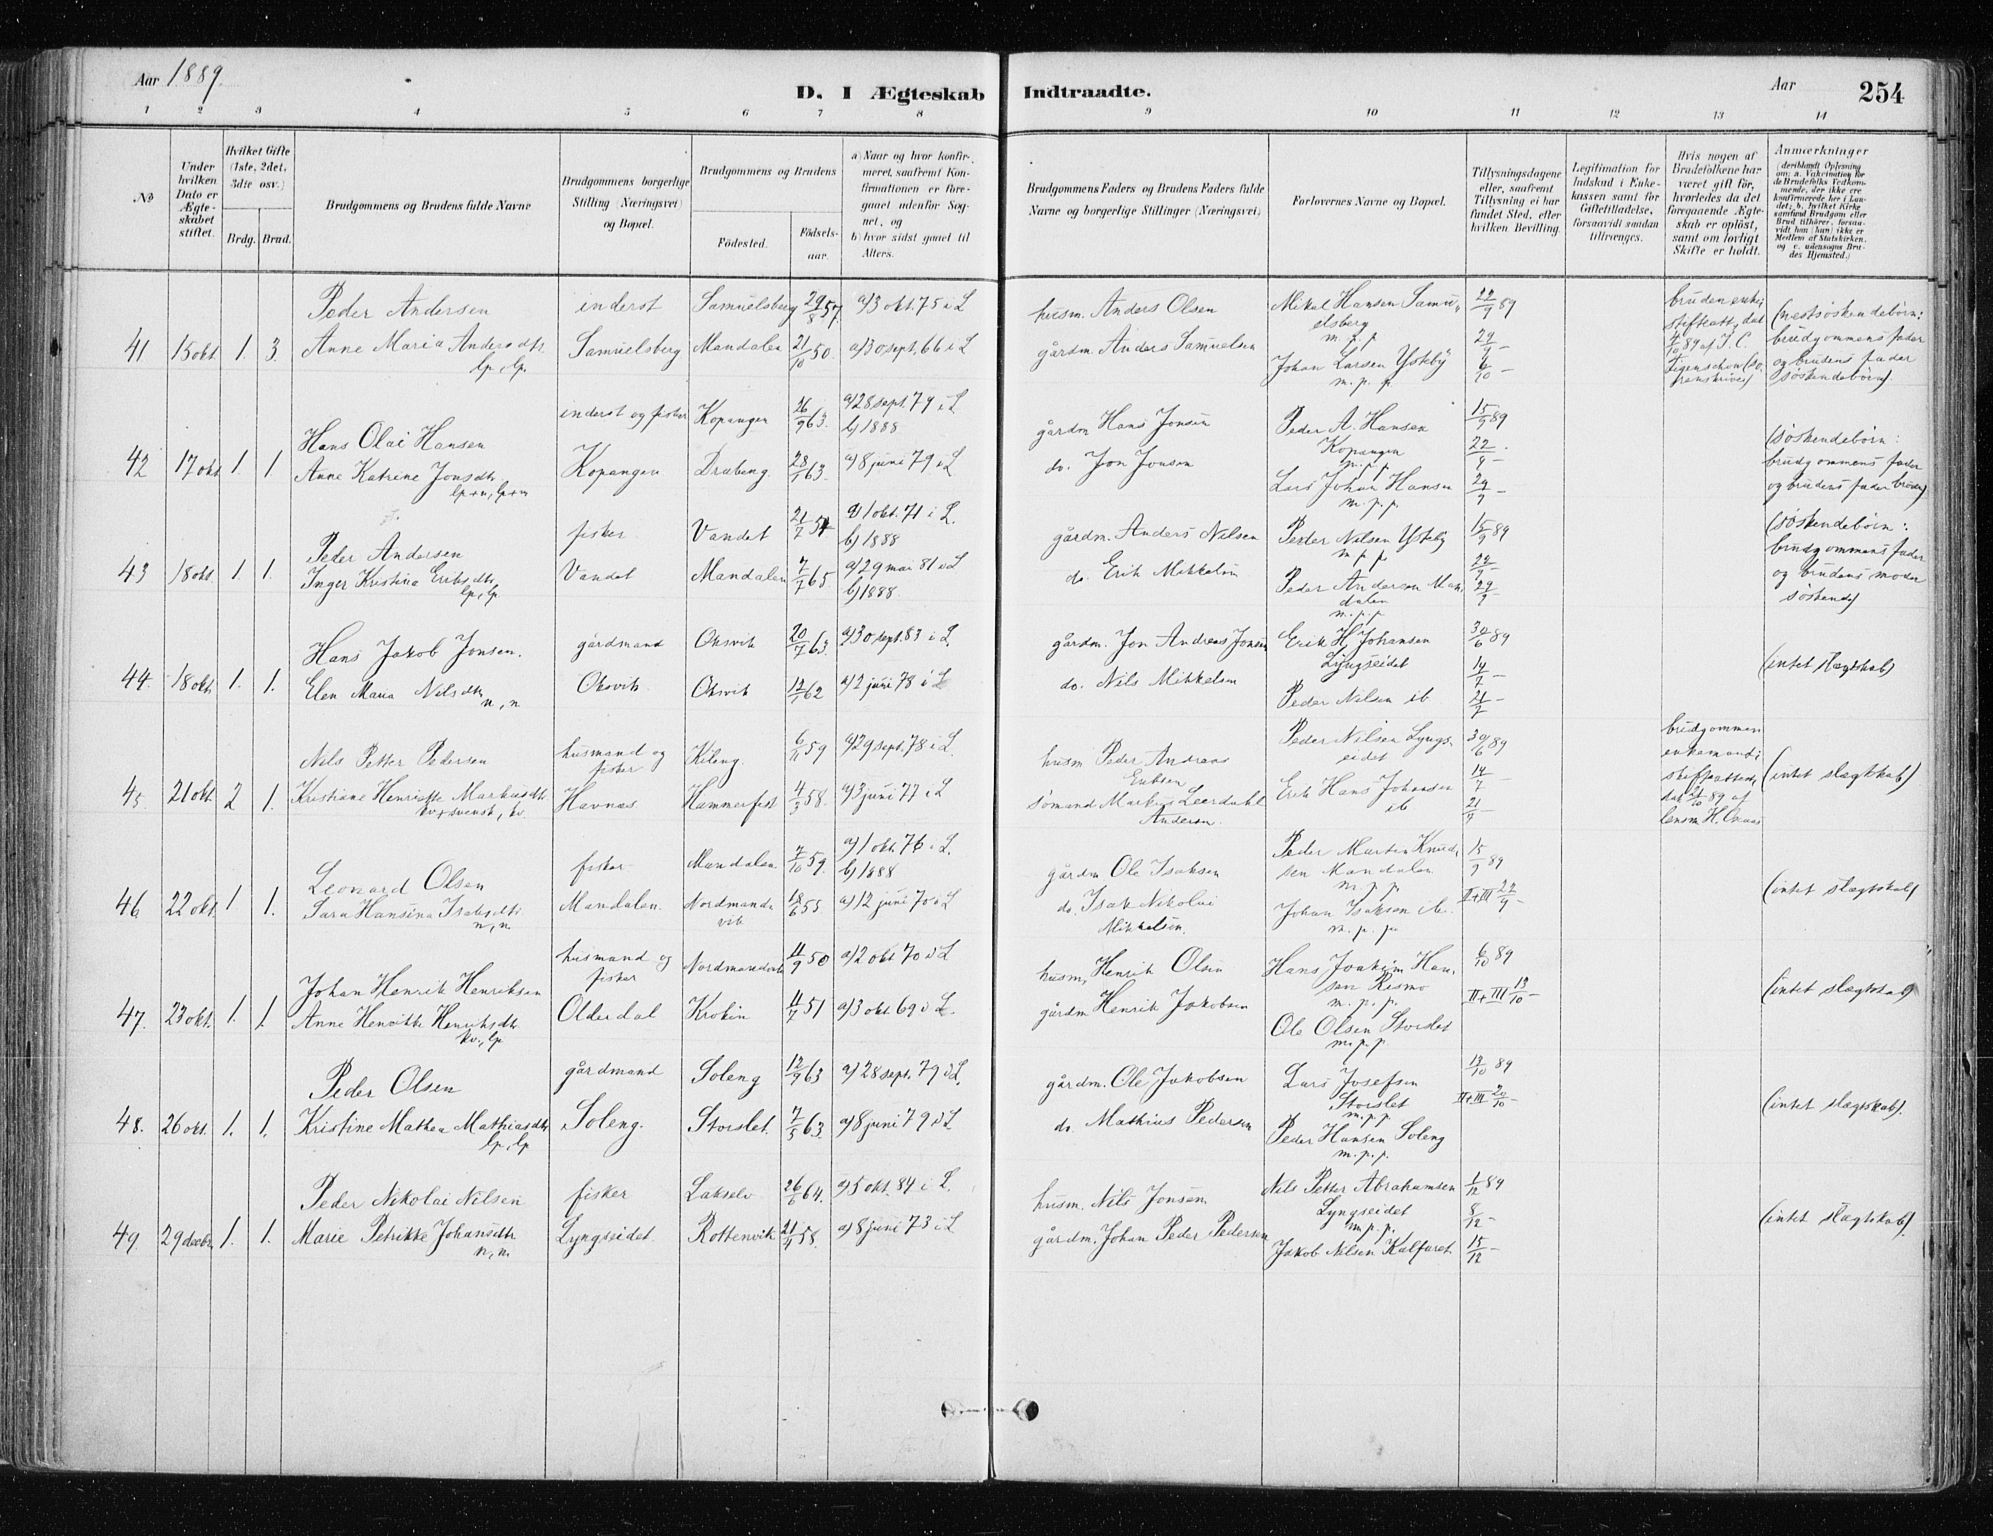 Aar 1889.
D. I Ægteskab Indtraadte.
Aar
254
1 2 3 4 5 6 7 8 9 10 11 12 13 14
No
Under hvilken Dato er Ægteskabet stiftet.
Hvilket Gifte (1ste, 2det, 3die osv.)
Brdg. Brud.
Brudgommens og Brudens fulde Navne
Brudgommens borgerlige Stilling (Næringsvei) og Bopæl.
Brudgommens og Brudens
Fødested.
Fødselsaar.
a) Naar og hvor konfirmeret, saafremt Konfirmationen er foregaaet udenfor Sognet, og
b) hvor sidst gaaet til Alters.
Brudgommens Faders og Brudens Faders fulde Navne og borgerlige Stillinger (Næringsvei)
Forlovernes Navne og Bopæl.
Tillysningsdagene eller, saafremt Tillysning ei har fundet Sted, efter hvilken Bevilling.
Legitimation for Indskud i Enkekassen samt for Giftetilladelse, forsaavidt saadan tiltrænges.
Hvis nogen af Brudefolkene har været gift før, hvorledes da det foregaaende Ægteskab er opløst, samt om lovligt Skifte er holdt.
Anmærkninger
(deriblandt Oplysning om: a. Vakcination for de Brudefolks Vedkommende, der ikke ere konfirmerede her i Landet; b. hvilket Kirkesamfund Brudgom eller Brud tilhører, forsaavidt han (hun) ikke er Medlem af Statskirken, og c. udensogns Brudes Hjemsted.)
41 15 okt. 1. 3.
Peder Andersen
Anne Maria Andersdtr
lp, lp.
inderst
Samuelsberg
Samuelsberg 29/8 57. a) 3 okt. 75 i L
Mandalen 21/10 50. a) 30 sept. 66 i L
husm. Anders Olsen
gårdm. Anders Samuelsen
Mikal Hansen Samuelsberg
m. p. p.
Johan Larsen Ysteby
m. p. p.
22/9 89
29/9 —
6/10 —
bruden enke;
skifteatt. dat
4/10 89 af J. C.
(nestsøskendebørn:
brudgommens fader
og brudens fader
søskendebørn).
42 17 okt 1. 1
Hans Olai Hansen
Anne Katrine Jonsdtr
lp+n, lp+n
inderst og fisker
Kopangen
Kopangen 26/9 63. a) 28 sept. 79 i L
b) 1888
Drabeng 28/1 63. a) 8 juni 79 i L
gårdm Hans Jonsen
do. Jon Jonsen
Peder A. Hansen
Kopangen
m. p. p.
Lars Johan Hansen
m. p. p.
15/9 89
22/9 —
29/9 —
(søskendebørn:
brudgommens fader
og brudens fader brødre)
43 18 okt. 1. 1.
Peder Andersen
Inger Kristina Eriksdtr
lp, lp
fisker
Vandet
Vandet 21/7 54 a) 1 okt. 71 i L.
b) 1888
Mandalen 7/7 65 a) 29 mai 81 i L
b) 1888.
gårdm. Anders Nilsen
do. Erik Mikkelsen
Peder Nilsen Ysteby
m. p. p
Peder Andersen Mandalen
m. p. p
15/9 89
22/9 —
29/9
(søskendebørn:
brudgommens fader
og brudens moder
søskende)
44. 18 okt. 1. 1.
Hans Jakob Jonsen.
Elen Maria Nilsdtr
n, n
gårdmand
Oksvik
Oksvik 20/7 63. a) 30 sept. 83 i L.
Oksvik 12/1 62 a) 2 juni 78 i L
gårdm. Jon Andreas Jonsen
do. Nils Mikkelsen
Erik H. Johansen
Lyngseidet
Peder Nilsen ib
30/6 89
14/7 —
21/7 —
(intet slægtskab)
45 21 okt 2 1.
Nils Petter Pedersen
Kristiane Henriette Markusdtr
kv+svensk, kv.
husmand og fisker
Havnæs
Kileng. 6/11 59 a) 29 sept. 78 i L.
Hammerfest 4/3 58. a) 3 juni 77 i L
husm Peder Andreas Eriksen
sømand Markus Leerdahl Andersen.
Peder Nilsen Lyngseidet
Erik Hans Johansen
ib
30/6 89
14/7 —
21/7 —
brudgommen
enkemand;
skifteattest
dat 21/10 89 af
lensm. H.
(intet slægtskab)
46 22 okt. 1 1.
Leonard Olsen
Sara Hansina Isaksdtr
n, n.
fisker
Mandalen.
Mandalen 7/10 59. a) 1 okt. 76 i L.
b) 1888
Nordmandvik 18/6 55 a) 12 juni 70 i L
gårdm Ole Isaksen
do. Isak Nikolai Mikkelsen.
Peder Martin Knudsen Mandalen
m. p. p.
Johan Isaksen ib.
m. p. p.
15/9 89
II+III 22/9 —
(intet slægtskab)
47. 23 okt. 1. 1.
Johan Henrik Henriksen
Anne Henrikke Henriksdtr.
kv, lp
husmand og fisker
Olderdal
Nordmandvik 11/9 50 a) 2 okt 70 i L
Kroken 4/7 51 a) 3 okt. 69 i L.
husm, Henrik Olsen
gårdm Henrik Jakobsen
Hans Joakim Hansen Rismo
m. p. p.
Ole Olsen Storslet
m. p. p.
6/10 89
II+III 13/10 —
(intet slægtskab)
48. 26 okt. 1. 1.
Peder Olsen
Kristine Mathea Mathiasdtr
lp, lp
gårdmand
Soleng.
Soleng 12/9 63 a) 28 sept. 79 i L.
Storslet. 7/5 63. a) 8 juni 79 i L
gårdm. Ole Jakobsen
do. Mathias Pedersen
Lars Josefsen
Storslet
m. p. p.
Peder Hansen Soleng
m. p. p.
13/10 89
II+III 20/10 —
(intet slægtskab).
49. 29 decbr. 1. 1.
Peder Nikolai Nilsen
Marie Petrikke Johansdtr
n, n.
fisker
Lyngseidet
Lakselv 26/6 64. a) 5 okt. 84 i L.
Rottenvik 21/4 58. a) 8 juni 73 i L
husm. Nils Jonsen
gårdm. Johan Peder Pedersen
Nils Petter Abrahamsen
Lyngseidet
m. p. p.
Jakob Nilsen Kalfaret.
1/12 89
8/12 —
15/12 —
(intet slægtskab).